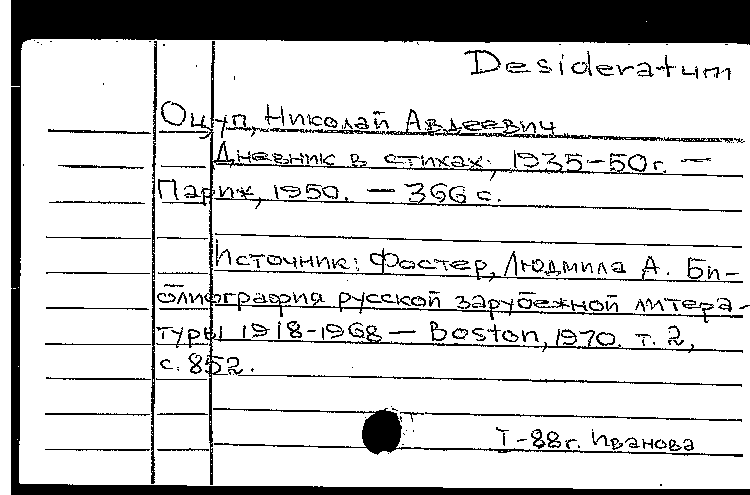 Desideratum
Оцуп, Николай Авдеевич
Дневник в стихах, 1935-50г. —
Париж, 1950. — 366 с.
Источник: Фостер, Людмила А. Би-
блиография русской зарубежной литера-
туры 1918-1968 — Boston, 1970. т. 2,
с. 852.
I-88г. Иванова